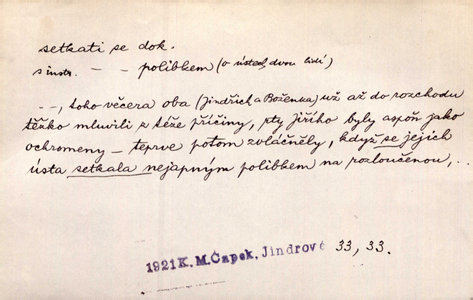 setkati se dok.
s instr. — — polibkem (o ústech dvou lidí)
— —, toho večera oba (Jindřich a Boženka) už až do rozchodu
těžko mluvili z téže příčiny, rty Jiřího byly aspoň jako
ochromeny — teprve potom zvláčněly, když se jejich
ústa setkala nejapným polibkem na rozloučenou, ..
1921 K. M. Čapek, Jindrové 33, 33.